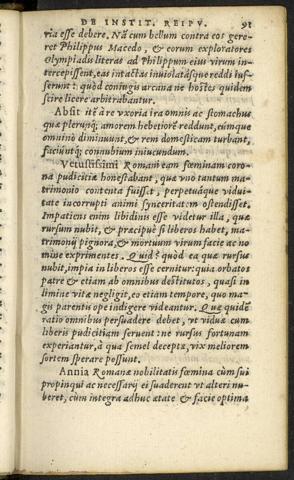 DE INSTIT. REIPV. 91
ria esse debere. Nã cum bellum contra eos gere-
ret Philippus Macedo, & eorum exploratores
Olympiadis literas ad Philippum eius virum in-
tercepissent, eas intactas inuiolatásque reddi iuss-
serunt: quòd coniugis arcana ne hostes quidem
scire licere arbitrabantur.
Absit itē à re vxoria ira omnis ac stomachus
quæ plerunq; amorem hebetiorē reddunt, eúmque
omninò diminuunt, & rem domesticam turbant,
faciuntq; connubium iniucundum.
Vetustissimi Romani eam fœminam coro-
na pudicitiæ honestabant, quæ vno tantum ma-
trimonio contenta fuisset, perpetuáque vidui-
tate incorrupti animi synceritatem ostendisset.
Impatiens enim libidinis esse videtur illa, quæ
rursum nubit, & præcipuè si liberos habet, ma-
trimonij pignora, & mortuum virum facie ac no
mine exprimentes. Quid? quòd ea quæ rursus
nubit, impia in liberos esse cernitur: quia orbatos
patre & etiam ab omnibus destitutos, quasi in
limine vitæ negligit, eo etiam tempore, quo ma-
gis parentis ope indigere videantur. Quæ quidē
ratio omnibus persuadere debet, vt viduæ cum
liberis pudicitiam seruent: ne rursus fortunam
experiantur, à qua semel deceptæ, vix meliorem
sortem sperare possunt.
Annia Romanæ nobilitatis fœmina cùm sui
propinqui ac necessarij ei suaderent vt alteri nu-
beret, cùm integra adhuc ætate & facie optima